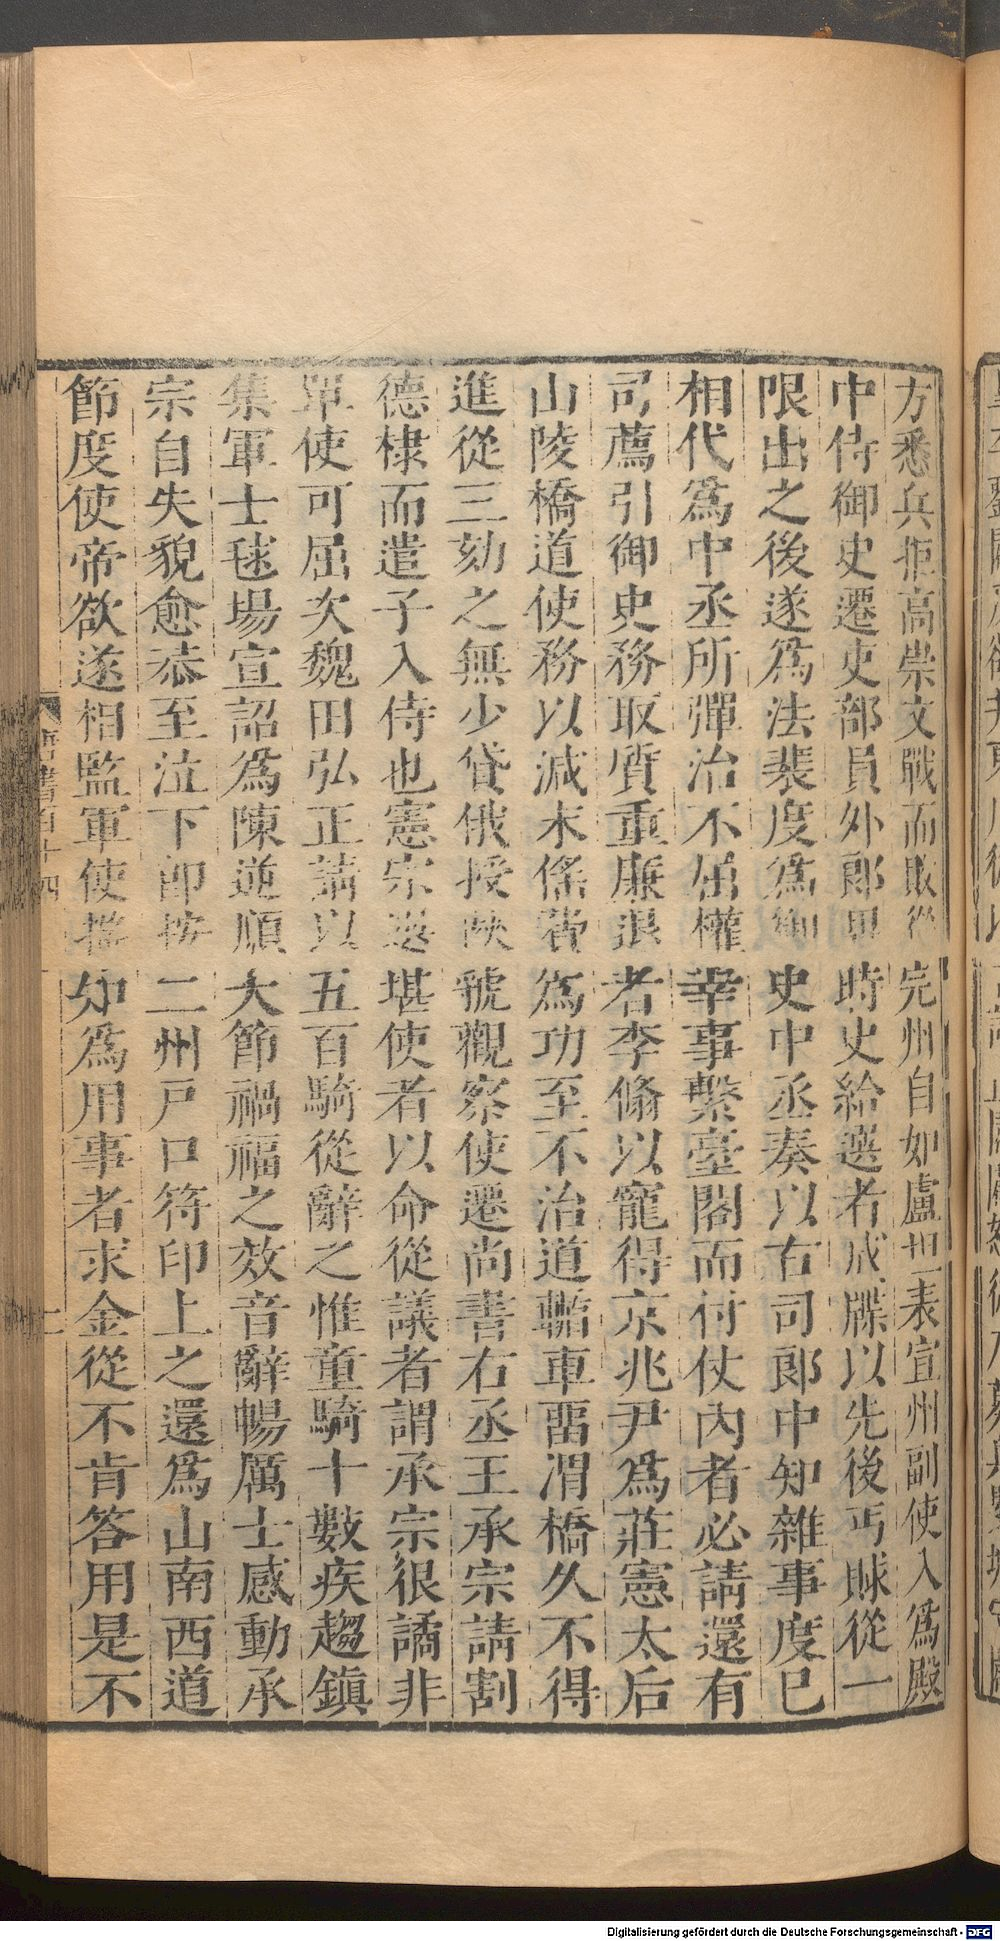 方悉兵拒高崇文戰而敗從完州自如盧坦表宣州副使入爲殿
中侍御史遷吏部員外郎異時史給選者成牒以先後丐賕從一
限出之後遂爲法裴度爲御史中丞奏以右司郎中知雜事度已
相代爲中丞所彈治不屈權幸事繫臺閣而付仗內者必請還有
司薦引御史務取質重廉退者李翛以寵得京兆尹爲莊憲太后
山陵橋道使務以減末傜費爲功至不治道輼車留渭橋久不得
進從三劾之無少貸俄授陝虢觀察使遷尚書右丞王承宗請割
德棣而遣子入侍也憲宗選堪使者以命從議者謂承宗很譎非
單使可屈次魏田弘正請以五百騎從辭之惟童騎十數疾趨鎭
集軍士毬場宣詔爲陳逆順大節禍福之效音辭暢厲士感動承
宗自失貌愈恭至泣下卽按二州戸口符印上之還爲山南西道
節度使帝欲遂相監軍使揣知爲用事者求金從不肯答用是不
唐書百十四
Digitalisierung gefördert durch die Deutsche Forschungsgemeinschaft - DFG